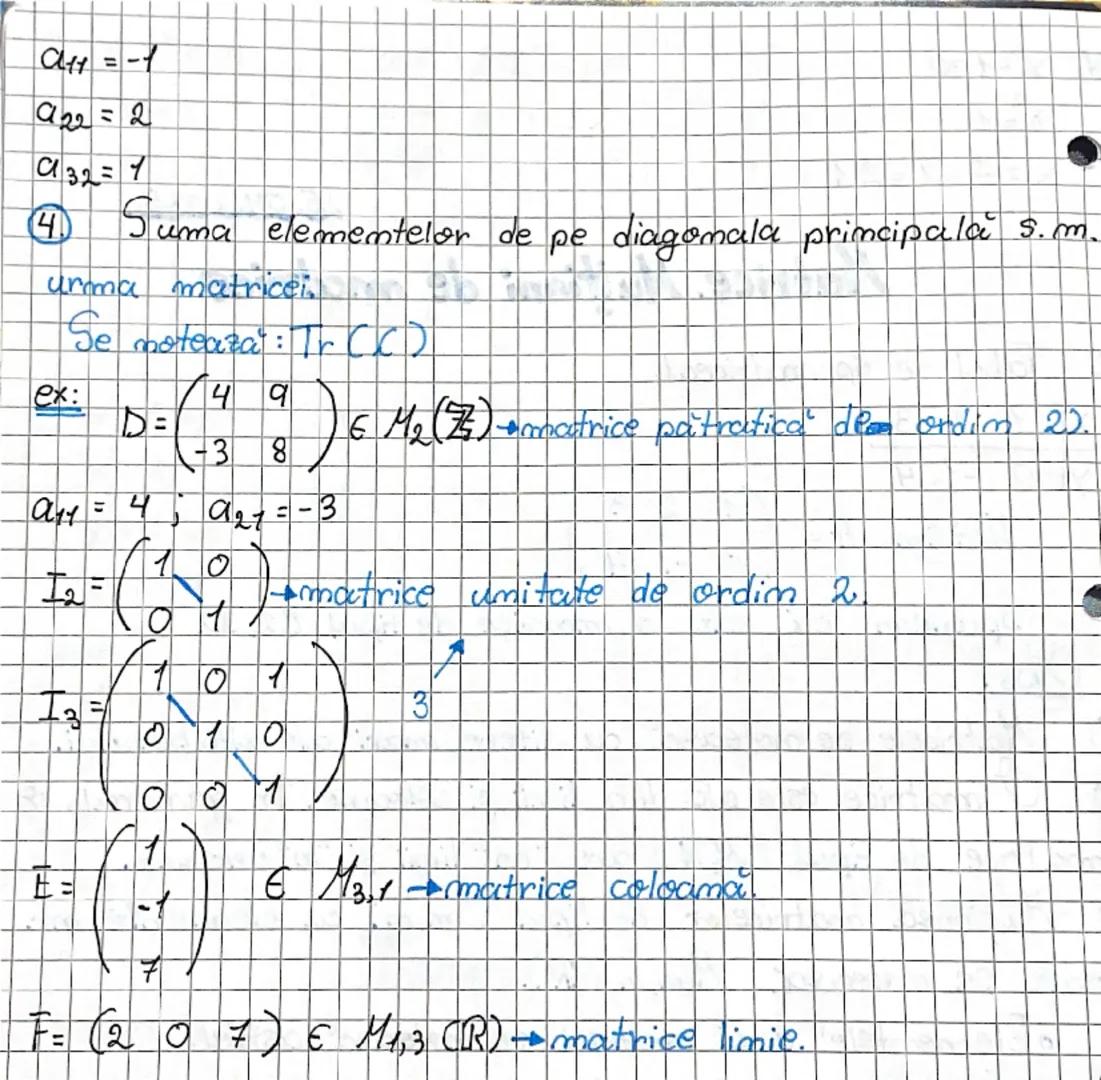 a11 = -1
a22 = 2
a32 = 1
4. Suma elementelor de pe diagonala principală s.m.
urma matricei.
Se notează: Tr (C)
ex: D = ( 4 9
-3 8 ) ∈ M2(ℤ) → matrice pătratică de ordin 2).
a11 = 4 ; a21 = -3
I2 = ( 1 0
0 1 ) → matrice unitate de ordin 2.
I3 = ( 1 0 1
0 1 0
0 0 1 )
3
E = ( 1
-1
7 ) ∈ M3,1 → matrice coloană.
F = (2 0 7) ∈ M1,3 (ℝ) → matrice linie.